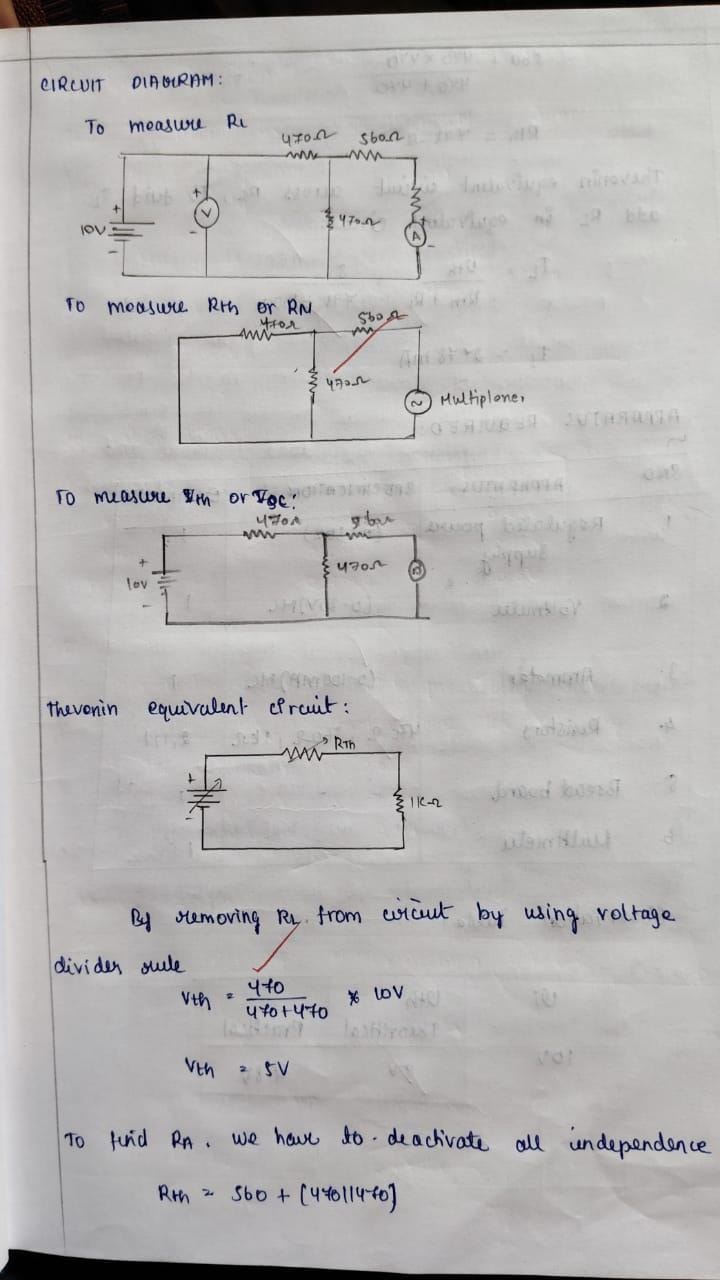 CIRCUIT DIAGRAM:
To measure RL
470Ω 560Ω
+ + V - 470Ω + A -
10V
-
To measure Rth or RN
470Ω 560Ω
470Ω
Multiplener
To measure Vth or Voc:
470Ω
+ 470Ω
10V
-
Thevenin equivalent circuit:
RTh
+
1KΩ
-
By removing RL from circuit by using voltage
divider rule
Vth = 470 / 470+470 × 10V
Vth = 5V
To find RA. we have to deactivate all independence
Rth = 560 + [470||470]